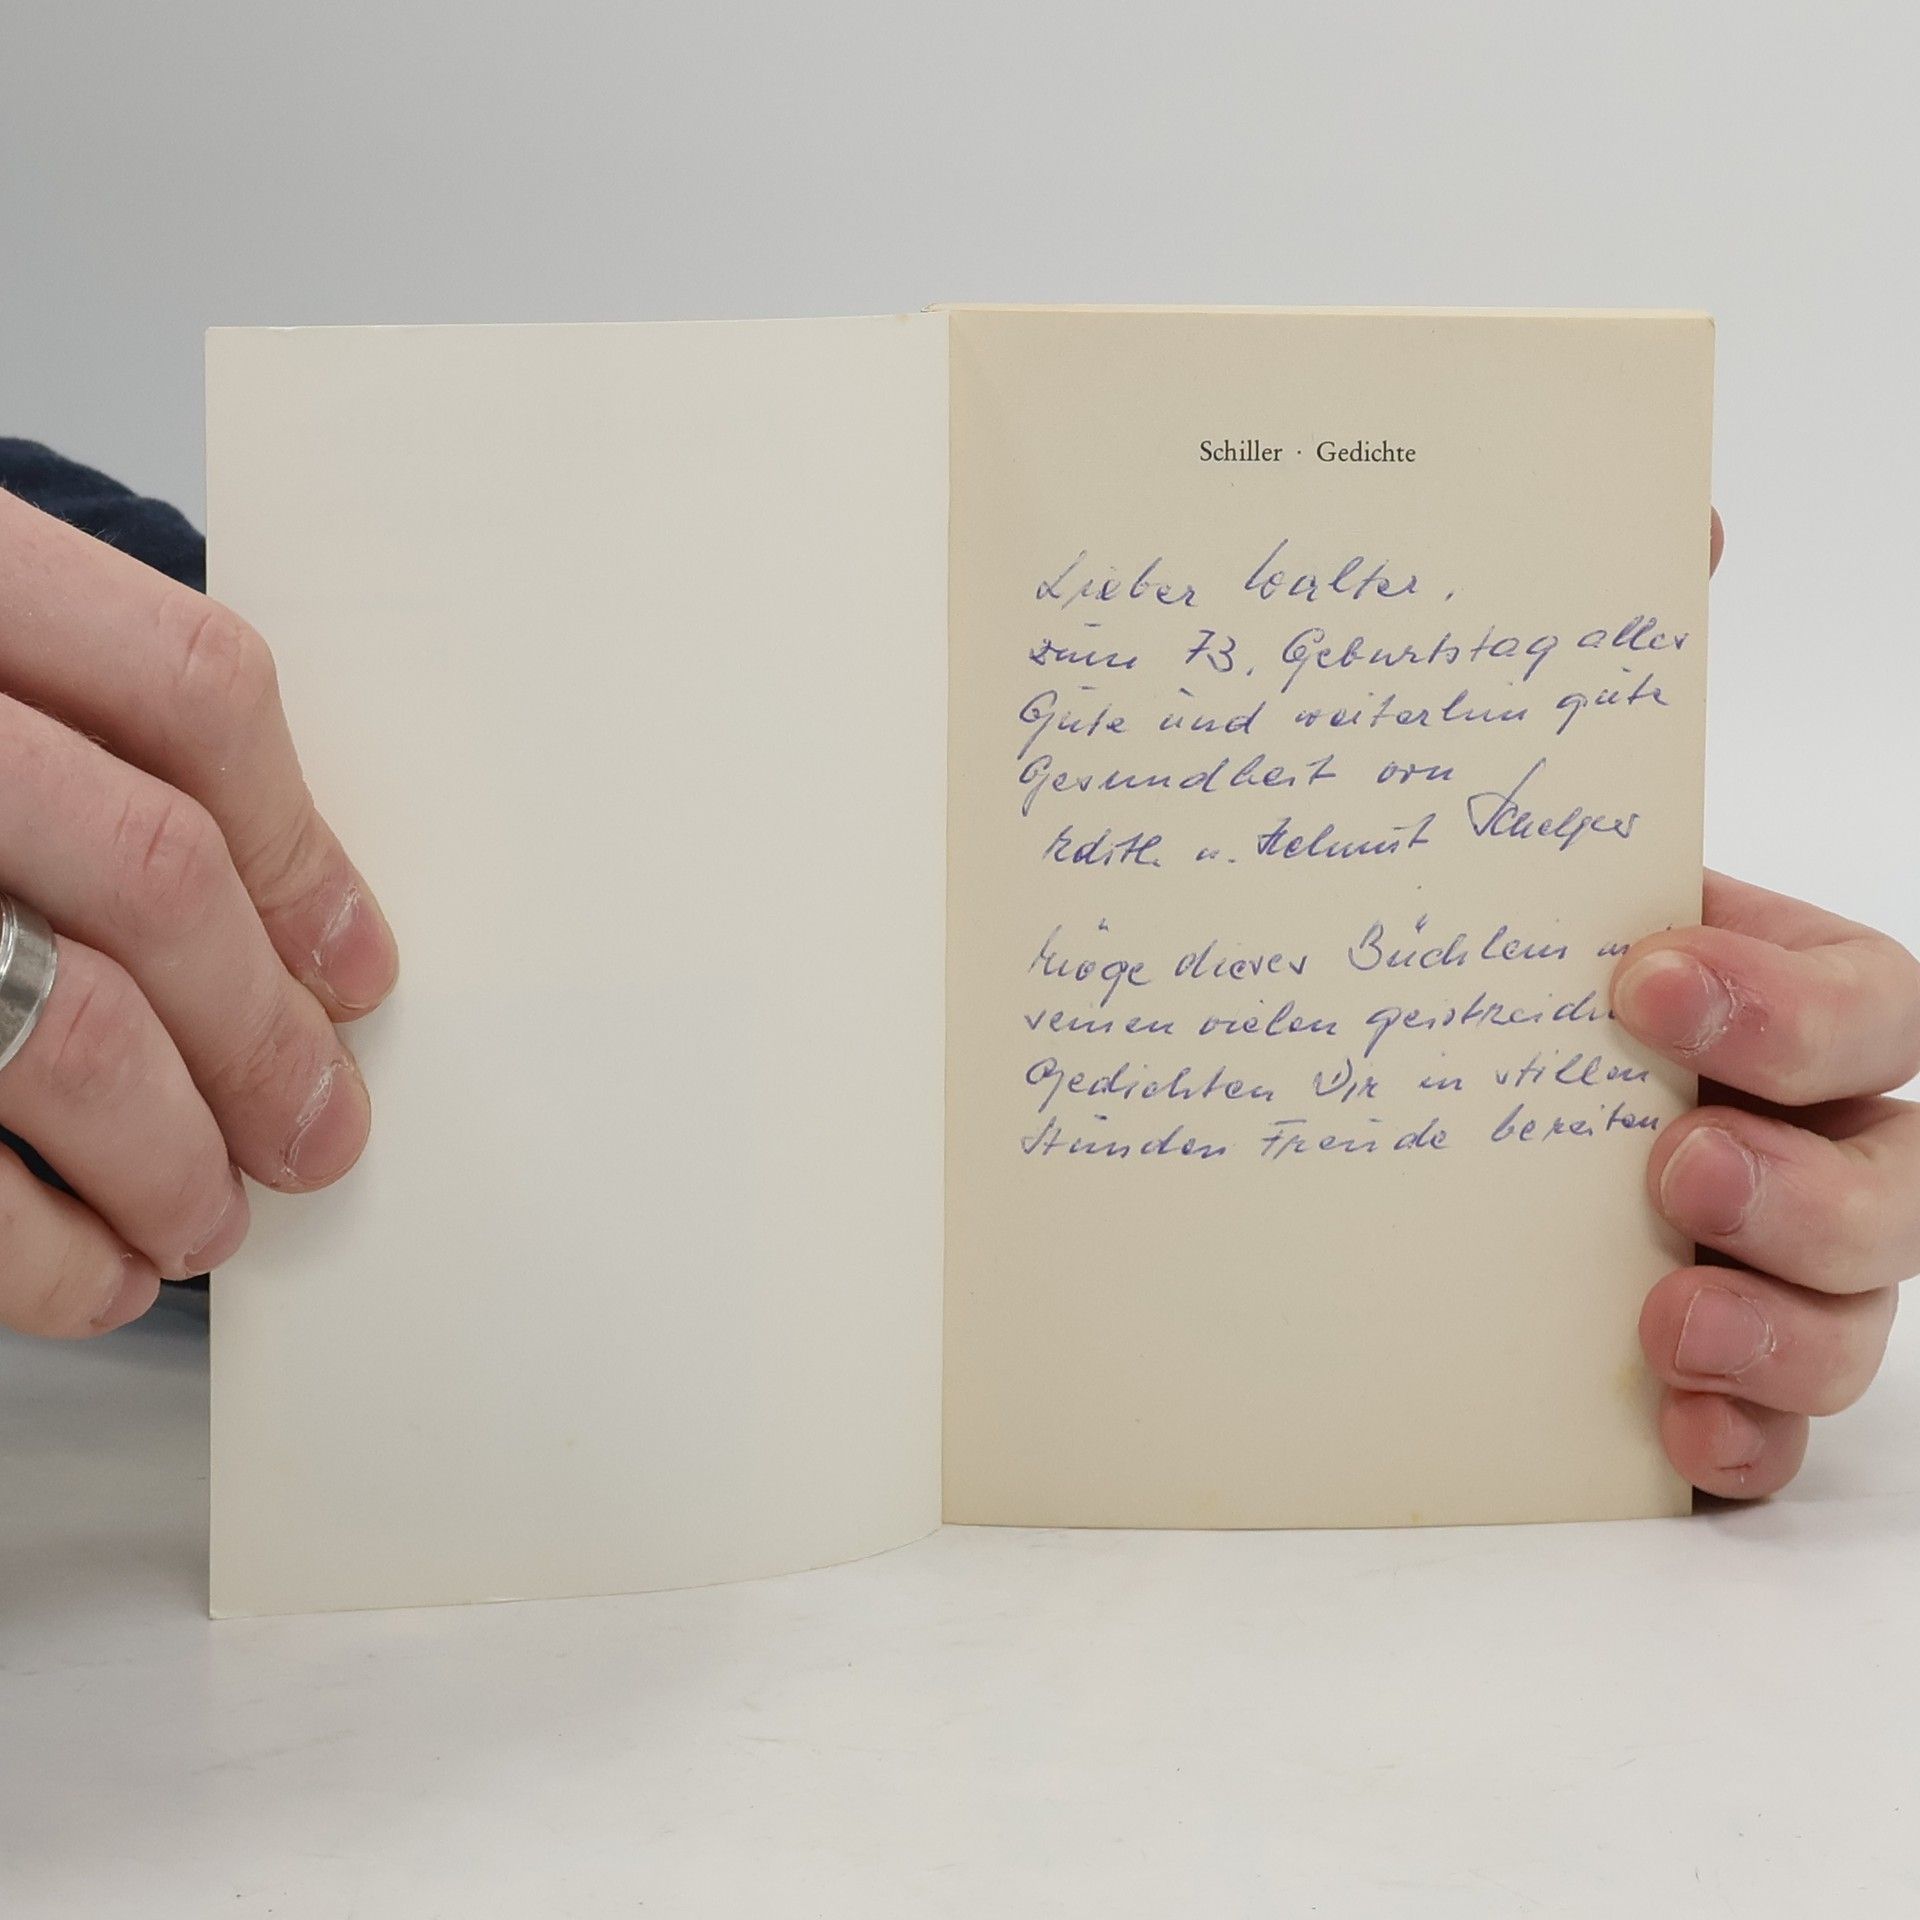 Schiller · Gedichte
Lieber Walter,
zum 73. Geburtstag alles
Gute und weiterhin gute
Gesundheit von
Edith u. Helmut
Möge dieses Büchlein
seinen vielen
Gedichten Dir in stillen
Stunden Freude bereiten